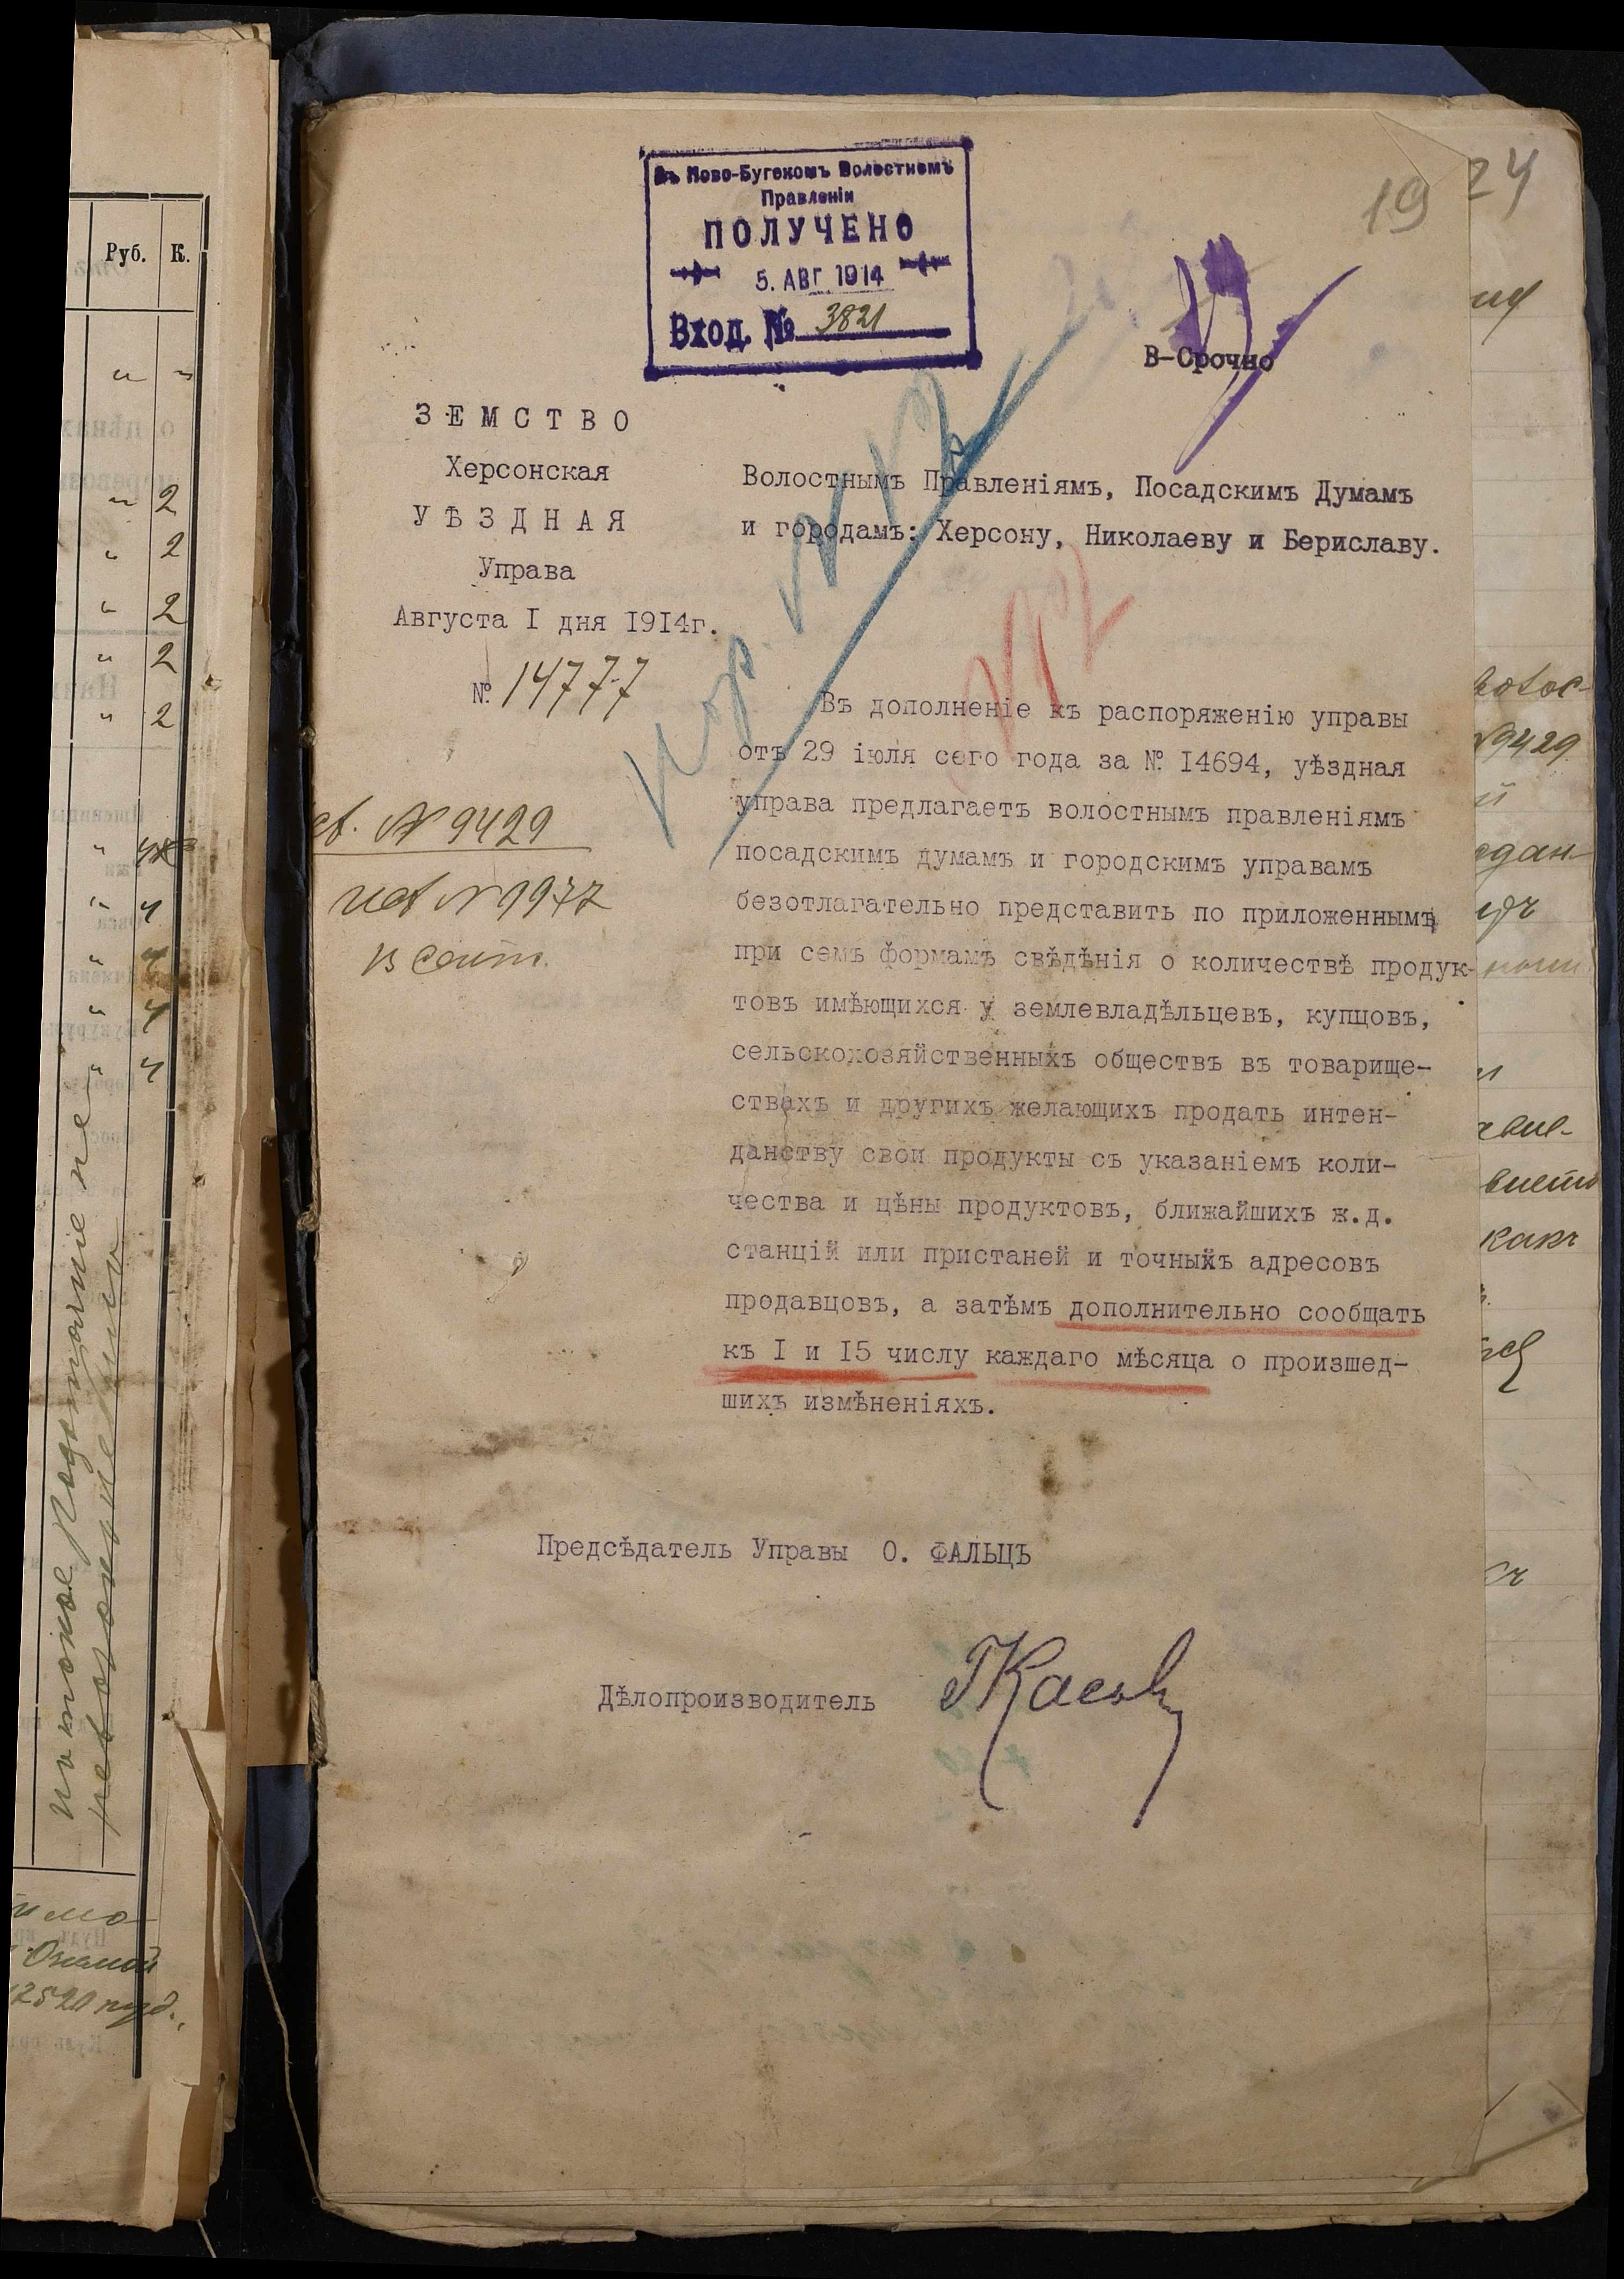 Руб. К.
" "
" 2
" 2
" 2
" 2
" 2
" 4
" 4
" 4
" 4
12520 пуд.
Въ Ново-Бугскомъ Волостномъ
Правленіи
ПОЛУЧЕНО
5. АВГ. 1914
Вход. № 3821
19
24
В-Срочно
ЗЕМСТВО
Херсонская
УѢЗДНАЯ
Управа
Августа I дня 1914г.
№ 14777
№ 9429
исп № 9977
Волостнымъ Правленіямъ, Посадскимъ Думамъ
и городамъ: Херсону, Николаеву и Бериславу.
Въ дополненіе къ распоряженію управы
отъ 29 іюля сего года за № I4694, уѣздная
управа предлагаетъ волостнымъ правленіямъ
посадскимъ думамъ и городскимъ управамъ
безотлагательно представить по приложеннымъ
при семъ формамъ свѣдѣнія о количествѣ продук-
товъ имѣющихся у землевладѣльцевъ, купцовъ,
сельскохозяйственныхъ обществъ въ товарище-
ствахъ и другихъ желающихъ продать интен-
данству свои продукты съ указаніемъ коли-
чества и цѣны продуктовъ, ближайшихъ ж.д.
станцій или пристаней и точныхъ адресовъ
продавцовъ, а затѣмъ дополнительно сообщать
къ I и I5 числу каждаго мѣсяца о произшед-
шихъ измѣненіяхъ.
Предсѣдатель Управы О. ФАЛЬЦЪ
Дѣлопроизводитель
№9429
какъ